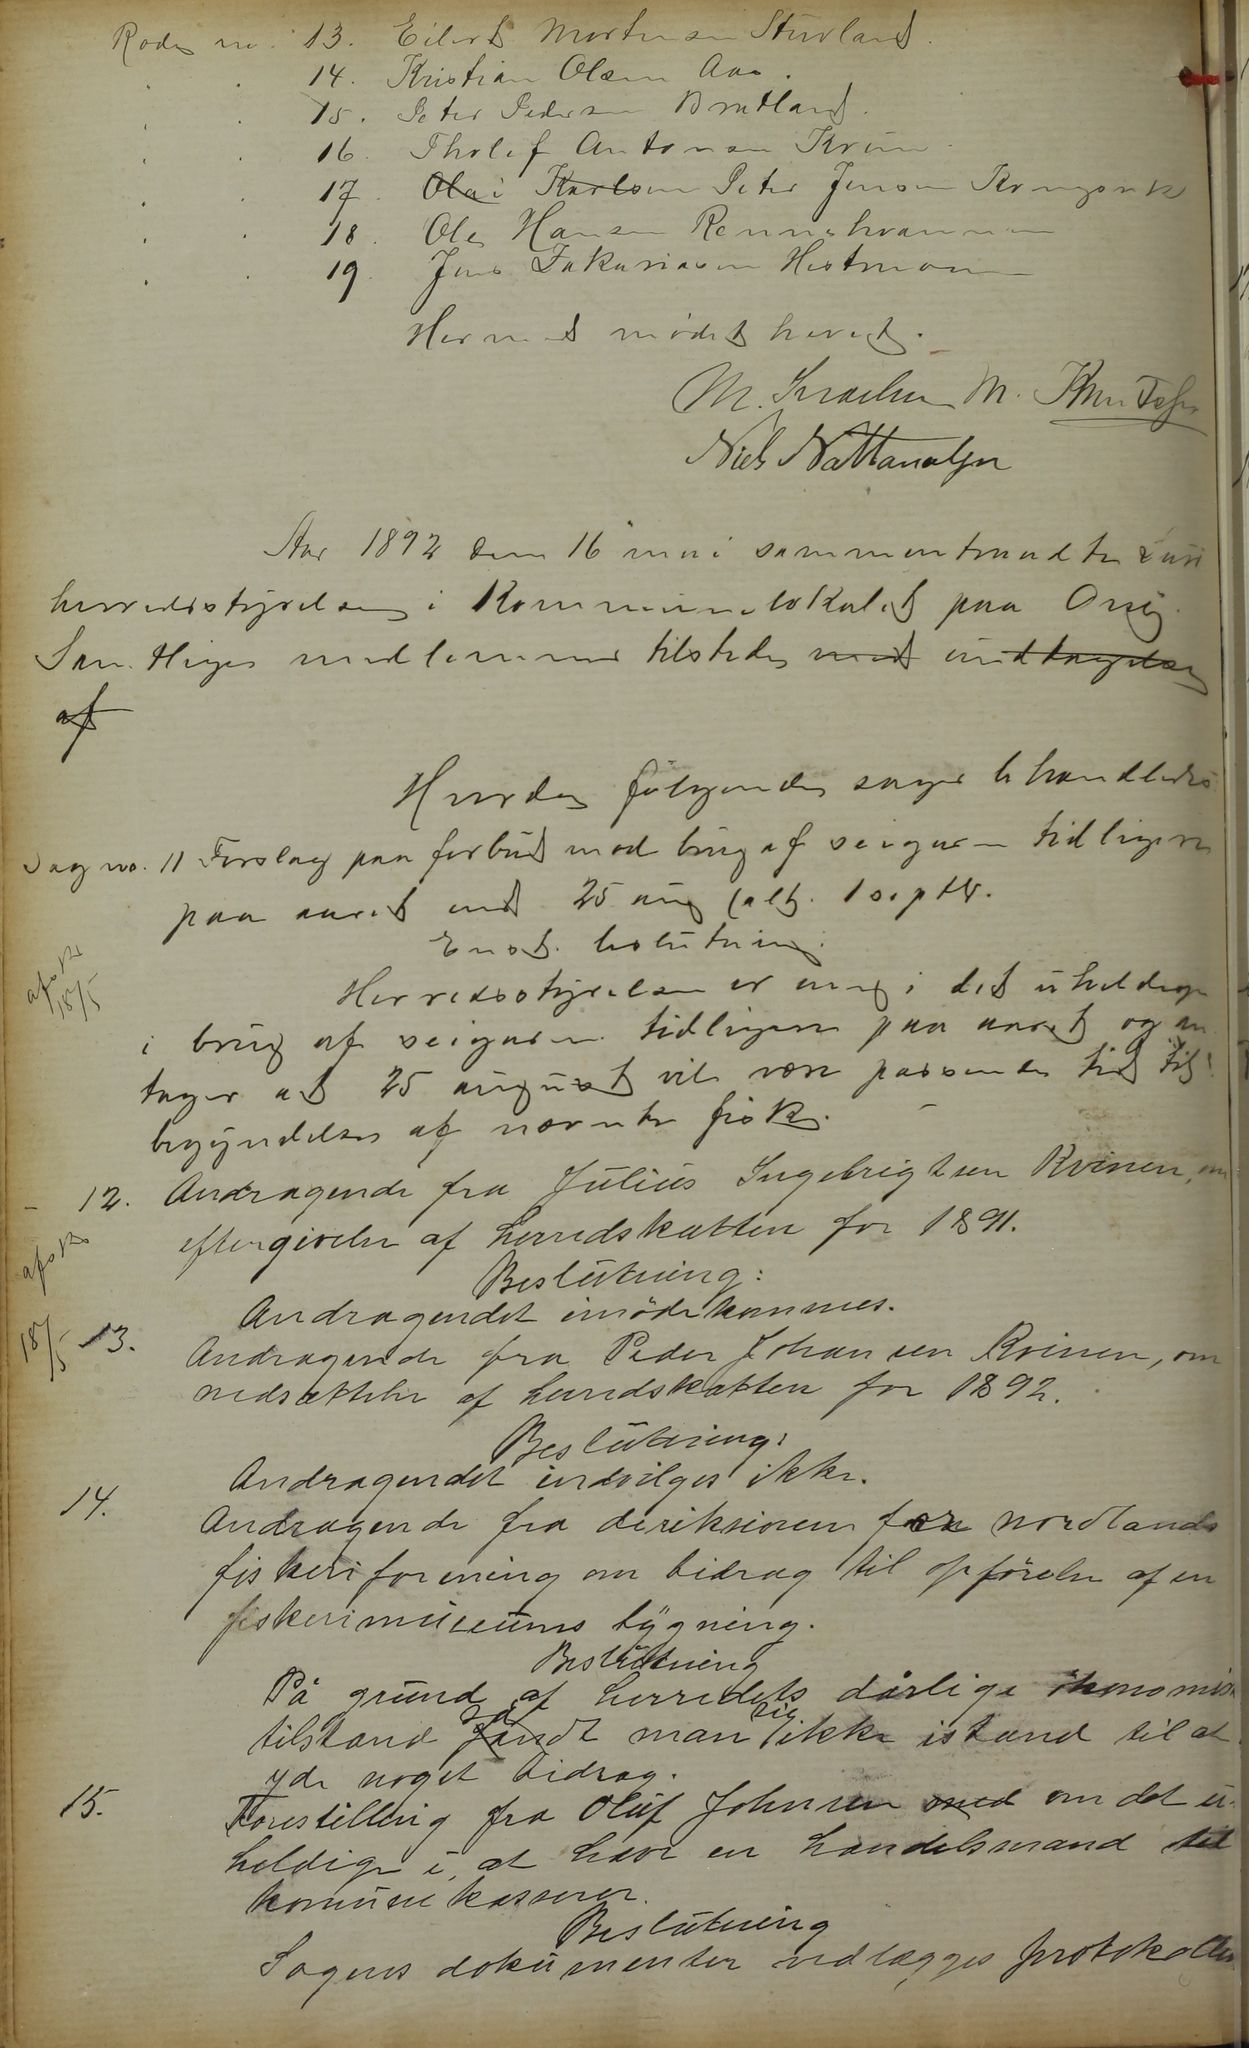 Rode no. 13. Eilert Mortensen Stuvland.
14. Kristian Olsen Aas.
15. Peter Pedersen Bratland.
16. Tholef Antonsen
17. Olai Karlsen Peter Jensen
18. Ole Hansen
19. Jens Zakariasen Hestmoen
Hermed mødet hevet.
M. Israelsen M. Knutsen
Niels Nattanaelsen
Aar 1892 den 16 mai sammentraadte Lurø
herredsstyrelse i Kommunelokalet paa Onøy.
Samtlige medlemmer tilstede med undtagelse
af
Hvorda følgende sager behandledes
Sag no. 11 Forslag paa forbud mod brug af seigarn tidligere
paa aaret end 25 aug (alt. 1 septbr.
Enst. beslutning:
afsk
18/5
Herredsstyrelsen er enig i det uheldige
i brug af seigarn tidligere paa aaret og an
tager at 25 august vil være passende tid til
begyndelse af nævnte fiske.
- 12. Andragende fra Julius Ingebrigtsen Kvinen, om
eftergivelse af herredskatten for 1891.
afsk
Beslutning:
Andragendet imødekommes.
18/5 - 13. Andragende fra Peder Johansen Kvinen, om
nedsættelse af herredskatten for 1892.
Beslutning:
Andragendet indvilges ikke.
14. Andragende fra dereksionen for nordlands
fiskeriforening om bidrag til opførelse af en
fiskerimuseums bygning.
Beslutning
På grund af herredets dårlige økonomiske
tilstand fandt man sig ikke istand til at
yde noget bidrag.
15. Forestilling fra Oluf Johnsen med om det u-
heldige i, at have en handelsmand til
komunekasserer.
Beslutning
Sagens dokumenter vedlægges protokollen